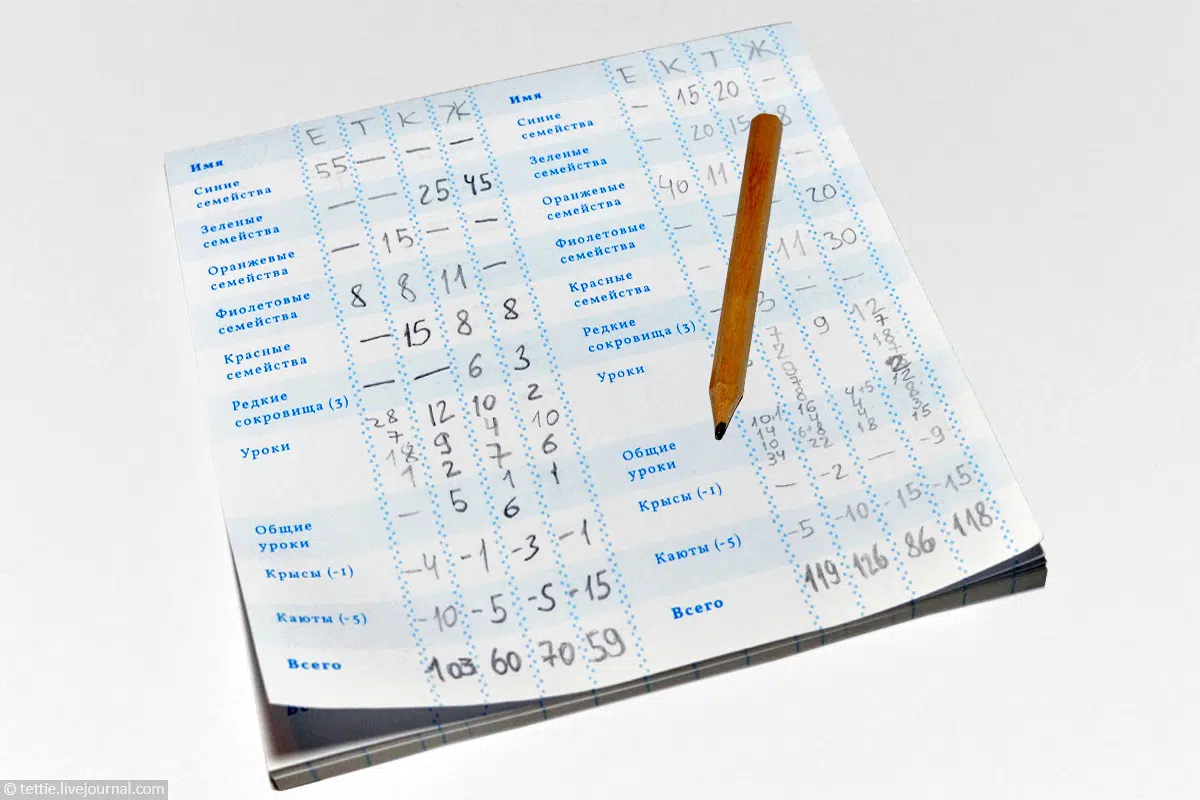 Имя Е Т К Ж
Синие
семейства 55 — — —
Зеленые
семейства — — 25 45
Оранжевые
семейства — 15 — —
Фиолетовые
семейства 8 8 11 —
Красные
семейства — 15 8 8
Редкие
сокровища (3) — — 6 3
Уроки 28 12 10 2
7 9 4 10
18 2 7 6
1 5 1 1
— 6
Общие
уроки
Крысы (-1) -4 -1 -3 -1
Каюты (-5) -10 -5 -5 -15
Всего 103 60 70 59
Имя Е К Т Ж
Синие
семейства — 15 20 —
Зеленые
семейства — 20 15 8
Оранжевые
семейства 40 11 —
Фиолетовые
семейства — — 20
Красные
семейства — 11 30
Редкие
сокровища (3) — 3 — —
Уроки 7 9 12
10+1 16 4+5
14 4 4
10 6+8 4
34 22 18 15
Общие
уроки
Крысы (-1) — -2 — -9
Каюты (-5) -5 -10 -15 -15
Всего 119 126 86 118
© tettie.livejournal.com